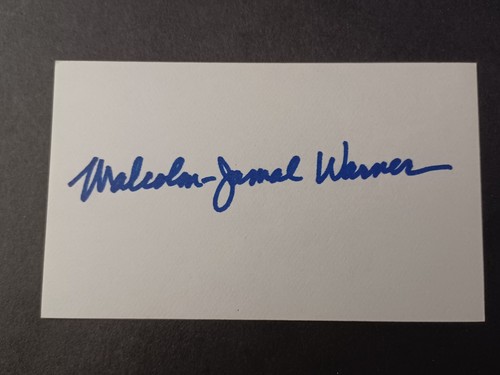 Malcolm-Jamal Warner